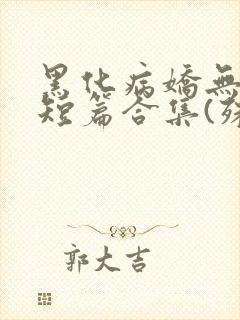 黑化病嬌無
短篇合集(殊
郭大吉